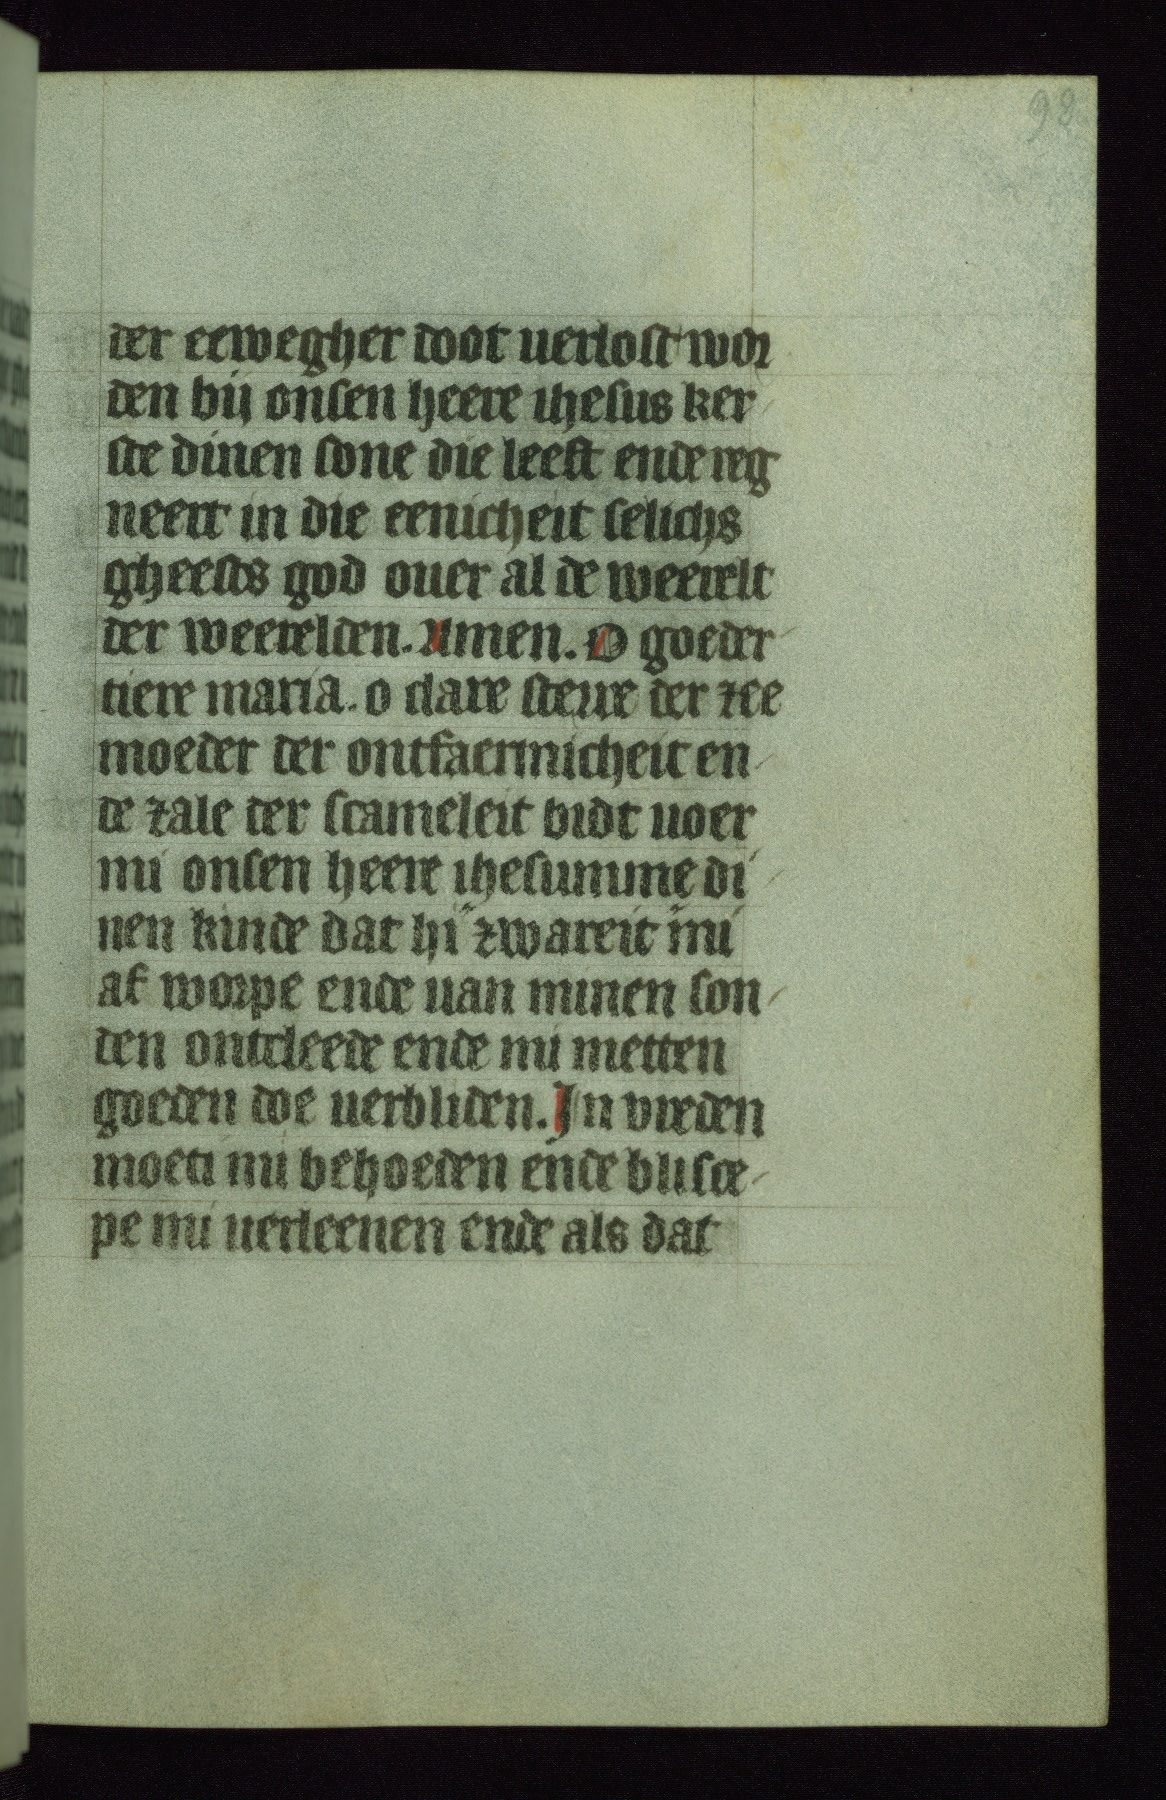 98
der eewegher doot uerlost wor
den bij onsen heere ihesus ker
ste dinen sone die leeft ende reg
neert in die eenicheit selichs
gheests god ouer al de weerelt
der weerelden. Amen. O goeder
tiere maria. o clare sterre der zee
moeder der ontfaermicheit en
de zale der scameleit bidt uoer
mi onsen heere ihesumme di
nen kinde dat hi zwareit mi
af worpe ende uan minen son
den ontcleede ende mi metten
goeden doe uerbliden. In vreden
moeti mi behoeden ende blisce
pe mi uerleenen ende als dat